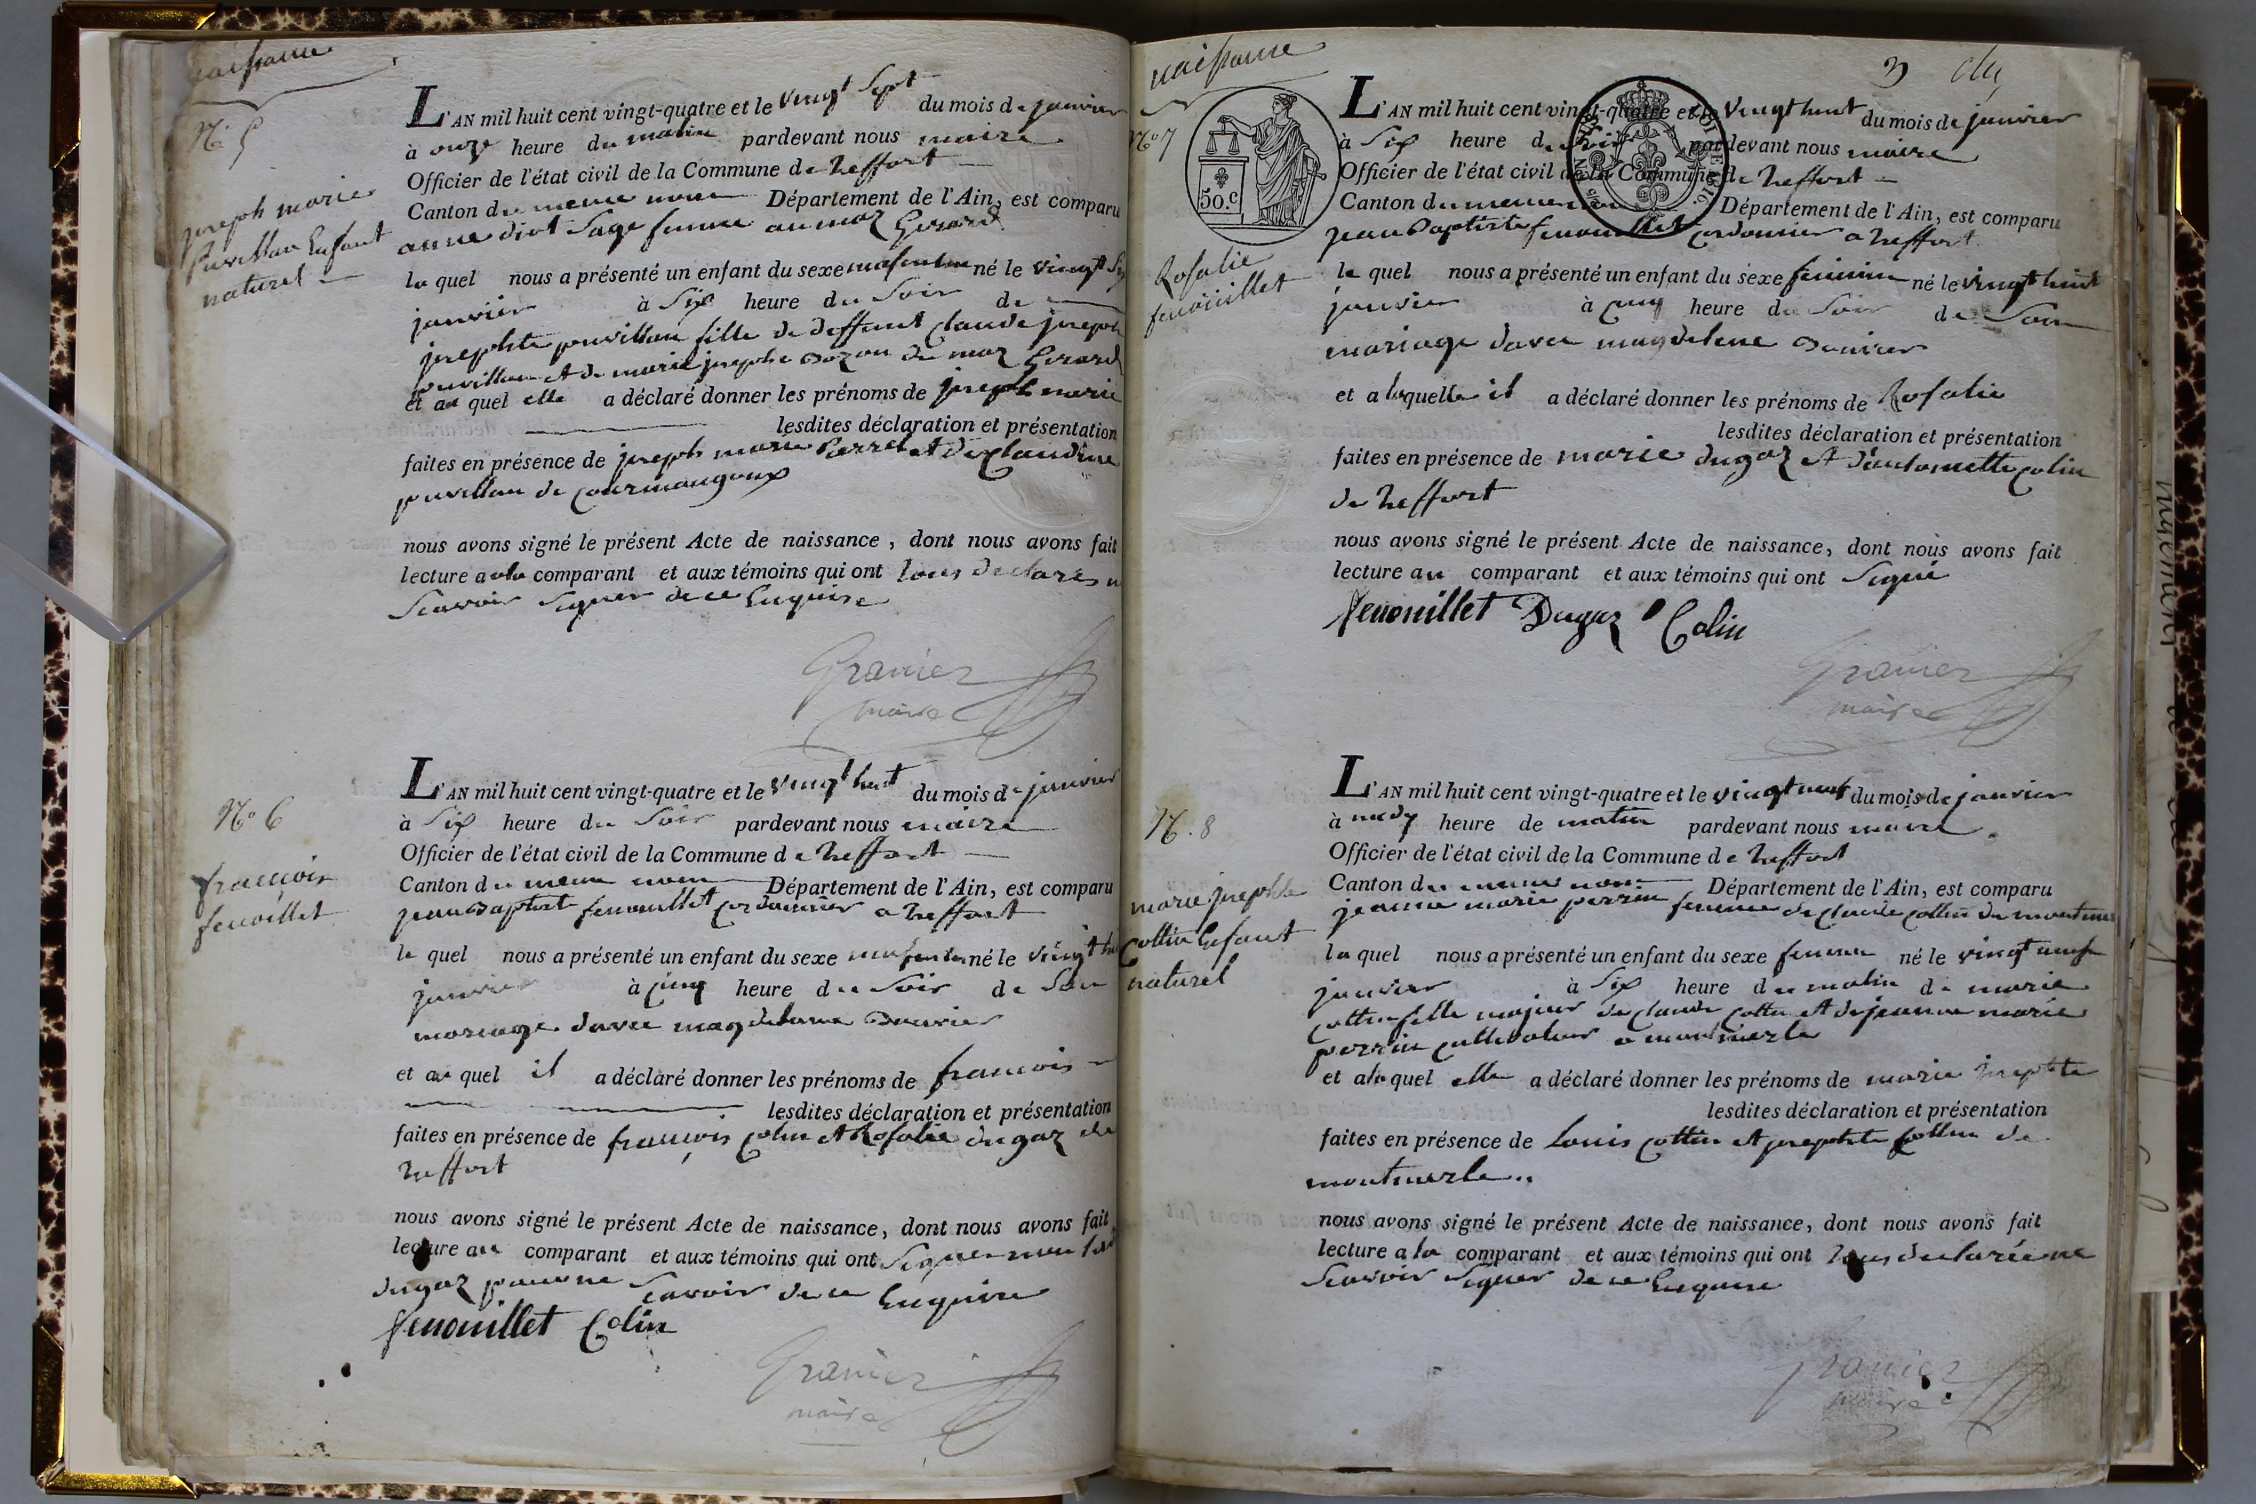 naissance
N.° 5
joseph marie
puvillan Enfant
naturel
L'AN mil huit cent vingt-quatre et le vingt Sept du mois de janvier
à onze heure du matin pardevant nous maire
Officier de l'état civil de la Commune de treffort
Canton du meme nom Département de l'Ain, est comparu
anne diot Sage femme au maz Girard
la quel nous a présenté un enfant du sexe masculin né le vingt Six
janvier à Six heure du Soir de
josephte puvillan fille de deffunt Claude joseph
puvillan et de marie josephe Bozon du maz Girard
et au quel elle a déclaré donner les prénoms de joseph marie
lesdites déclaration et présentation
faites en présence de joseph marie Perret et de Claudine
puvillan de Courmangoux
nous avons signé le présent Acte de naissance, dont nous avons fait
lecture a la comparant et aux témoins qui ont tous declarés n
Scavoir Signer de ce Enquise
Granier
maire
N.° 6
françois
fenoüillet
L'AN mil huit cent vingt-quatre et le vingt huit du mois de janvier
à Six heure du Soir pardevant nous maire
Officier de l'état civil de la Commune de treffort
Canton du meme nom Département de l'Ain, est comparu
jean Baptiste fenouillet cordonnier a treffort
le quel nous a présenté un enfant du sexe masculin né le vingt hu
janvier à Cinq heure du Soir de Son
mariage davec magdelaine
et au quel il a déclaré donner les prénoms de francois
lesdites déclaration et présentation
faites en présence de françois Colin et Rosalie dugaz de
treffort
nous avons signé le présent Acte de naissance, dont nous avons fait
lecture au comparant et aux témoins qui ont Signer non la
dugaz pour ne Scavoir de ce Enquise
fenouillet Colin
Granier
maire
naissance
3
N.° 7
50.C
Rosalie
fenoüillet
L'AN mil huit cent vingt-quatre et le vingt huit du mois de janvier
à Six heure du Soir pardevant nous maire
Officier de l'état civil de la Commune de treffort
Canton du meme nom Département de l'Ain, est comparu
jean Baptiste fenouillet cordonnier a treffort
le quel nous a présenté un enfant du sexe feminin né le vingt huit
janvier à Cinq heure du Soir de Son
mariage davec magdelene
et a laquelle il a déclaré donner les prénoms de Rosalie
lesdites déclaration et présentation
faites en présence de marie dugaz et d'antoinette Colin
de treffort
nous avons signé le présent Acte de naissance, dont nous avons fait
lecture au comparant et aux témoins qui ont Signé
fenouillet Dugaz Colin
Granier
maire
N.° 8
marie josephte
Cottin Enfant
naturel
L'AN mil huit cent vingt-quatre et le vingt neuf du mois de janvier
à midy heure de matin pardevant nous maire
Officier de l'état civil de la Commune de treffort
Canton du meme nom Département de l'Ain, est comparu
jeanne marie perrin femme de claude Cottin de montmer
la quel nous a présenté un enfant du sexe femme né le vingt neuf
janvier à Six heure du matin de marie
Cottin fille majeur de Claude Cottin et de jeanne marie
perrin cultivateur a montmerle
et a la quel elle a déclaré donner les prénoms de marie josephte
lesdites déclaration et présentation
faites en présence de Louis Cottin et josephte Cottin de
montmerle..
nous avons signé le présent Acte de naissance, dont nous avons fait
lecture a la comparant et aux témoins qui ont tous declarée ne
Scavoir Signer de ce Enquise
Granier
maire